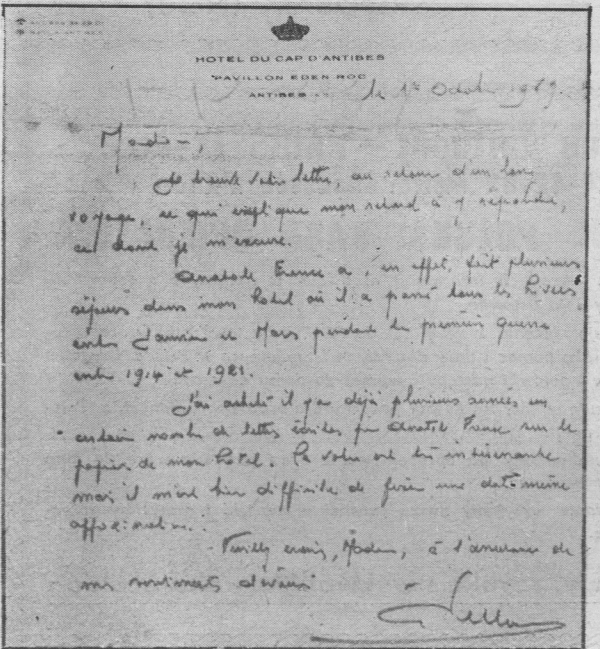 HOTEL DU CAP D'ANTIBES
PAVILLON EDEN ROC
ANTIBES
le 1er Octobre 1969
Madame,
Je trouve votre lettre, au retour d'un long
voyage, ce qui explique mon retard à y répondre,
ce dont je m'excuse.
Anatole France a, en effet, fait plusieurs
séjours dans mon hotel où il a passé tous les hivers
entre Janvier et Mars pendant la première guerre
entre 1914 et 1921.
J'ai acheté il y a déjà plusieurs années un
certain nombre de lettres écrites par Anatole France sur le
papier de mon hotel. La votre est très intéressante
mais il m'est bien difficile de fixer une date même
approximative.
Veuillez croire, Madame, à l'assurance de
mes sentiments dévoués